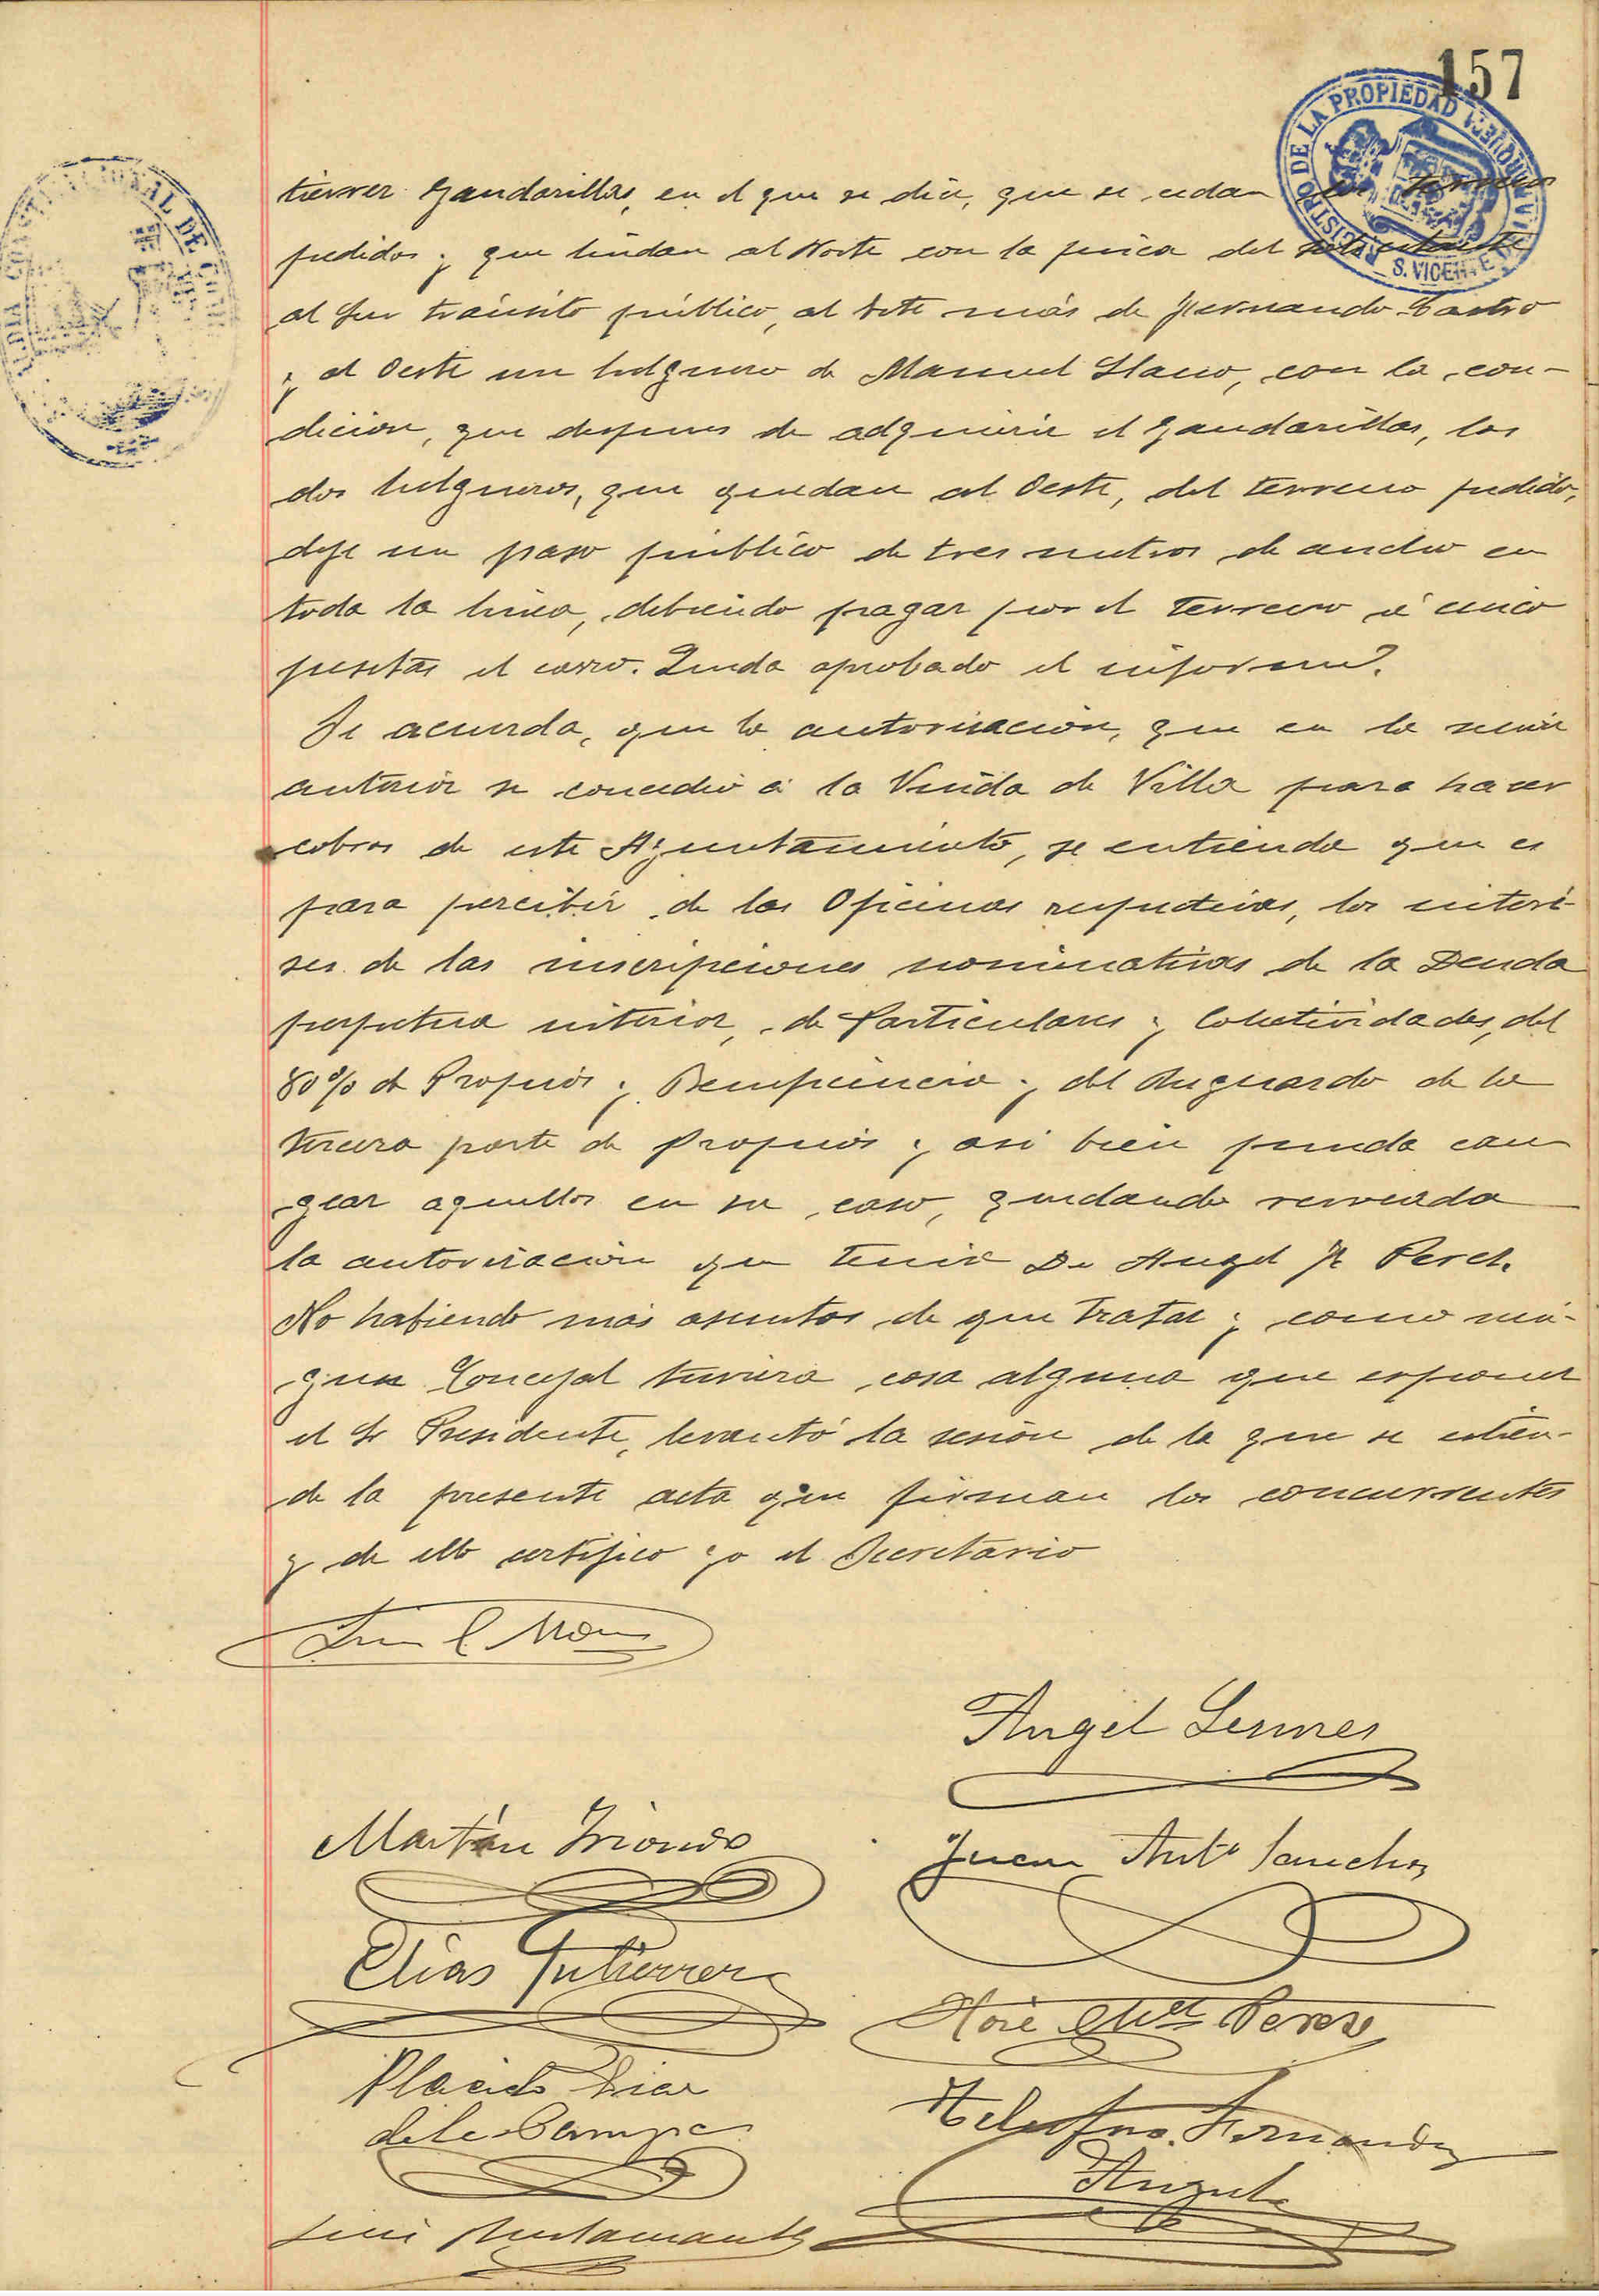 157
REGISTRO DE LA PROPIEDAD
S. VICENTE
Gandarillas, en el que se dice, que se cedan los terrenos
pedidos y que lindan al Norte con la finca del solicitante
al Sur tránsito público, al Este más de Fernando Castro
y al Oeste un helguero de Manuel Llano, con la con-
dicion, que despues de adquirir el Gandarillas, los
dos helgueros, que quedan al Oeste, del terreno pedido,
deje un paso público de tres metros de ancho en
toda la linea, debiendo pagar por el terreno á cinco
pesetas el carro. Queda aprobado el informe.
Se acuerda, que la autorizacion, que en la sesión
anterior se concedió á la Viuda de Villa para hacer
cobros de este Ayuntamiento, se entienda que es
para percibir de las Oficinas respectivas, los intere-
ses de las inscripciones nominativas de la Deuda
perpetua interior, de Particulares y Colectividades, del
80% de Propios y Beneficencia y del Resguardo de la
tercera parte de Propios y asi bien pueda can
gear aquellos en su caso, quedando revocada
la autorizacion que tenia Dn Angel F. Perez.
No habiendo más asuntos de que tratar y como nin-
gun Concejal tuviera cosa alguna que esponer
el Sr Presidente, levantó la sesión de la que se estien-
de la presente acta que firman los concurrentes
y de ello certifico yo el Secretario
Angel
Martín Iriondo
Juan Antº Sanchez
Elias Gutierrez
José Mel Perez
Placido Diaz
de la Campa
Telesforo Fernandez
Luis Bustamante